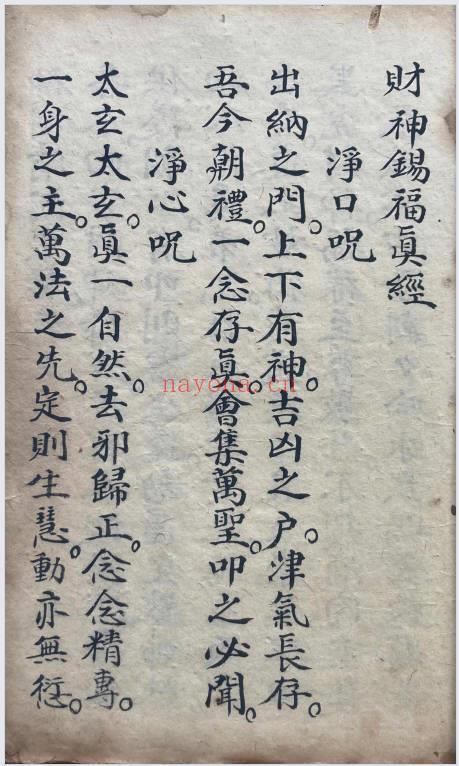 財神錫福眞經
淨口呪
出納之門。上下有神。吉凶之户。津氣長存。
吾今朝禮。一念存眞。會集萬聖。叩之必聞。
淨心呪
太玄太玄。眞一自然。去邪歸正。念念精專。
一身之主。萬法之先。定則生慧。動亦無愆。
nayona.cn